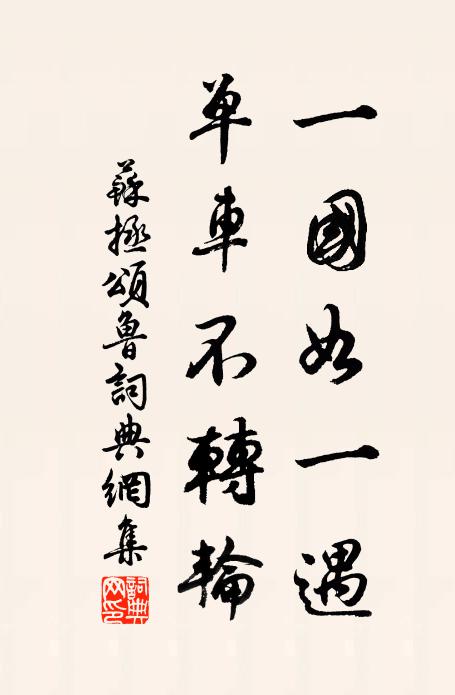 一國如一遇
單車不轉輪
蘇拯頌魯詞典網集
詞典網印